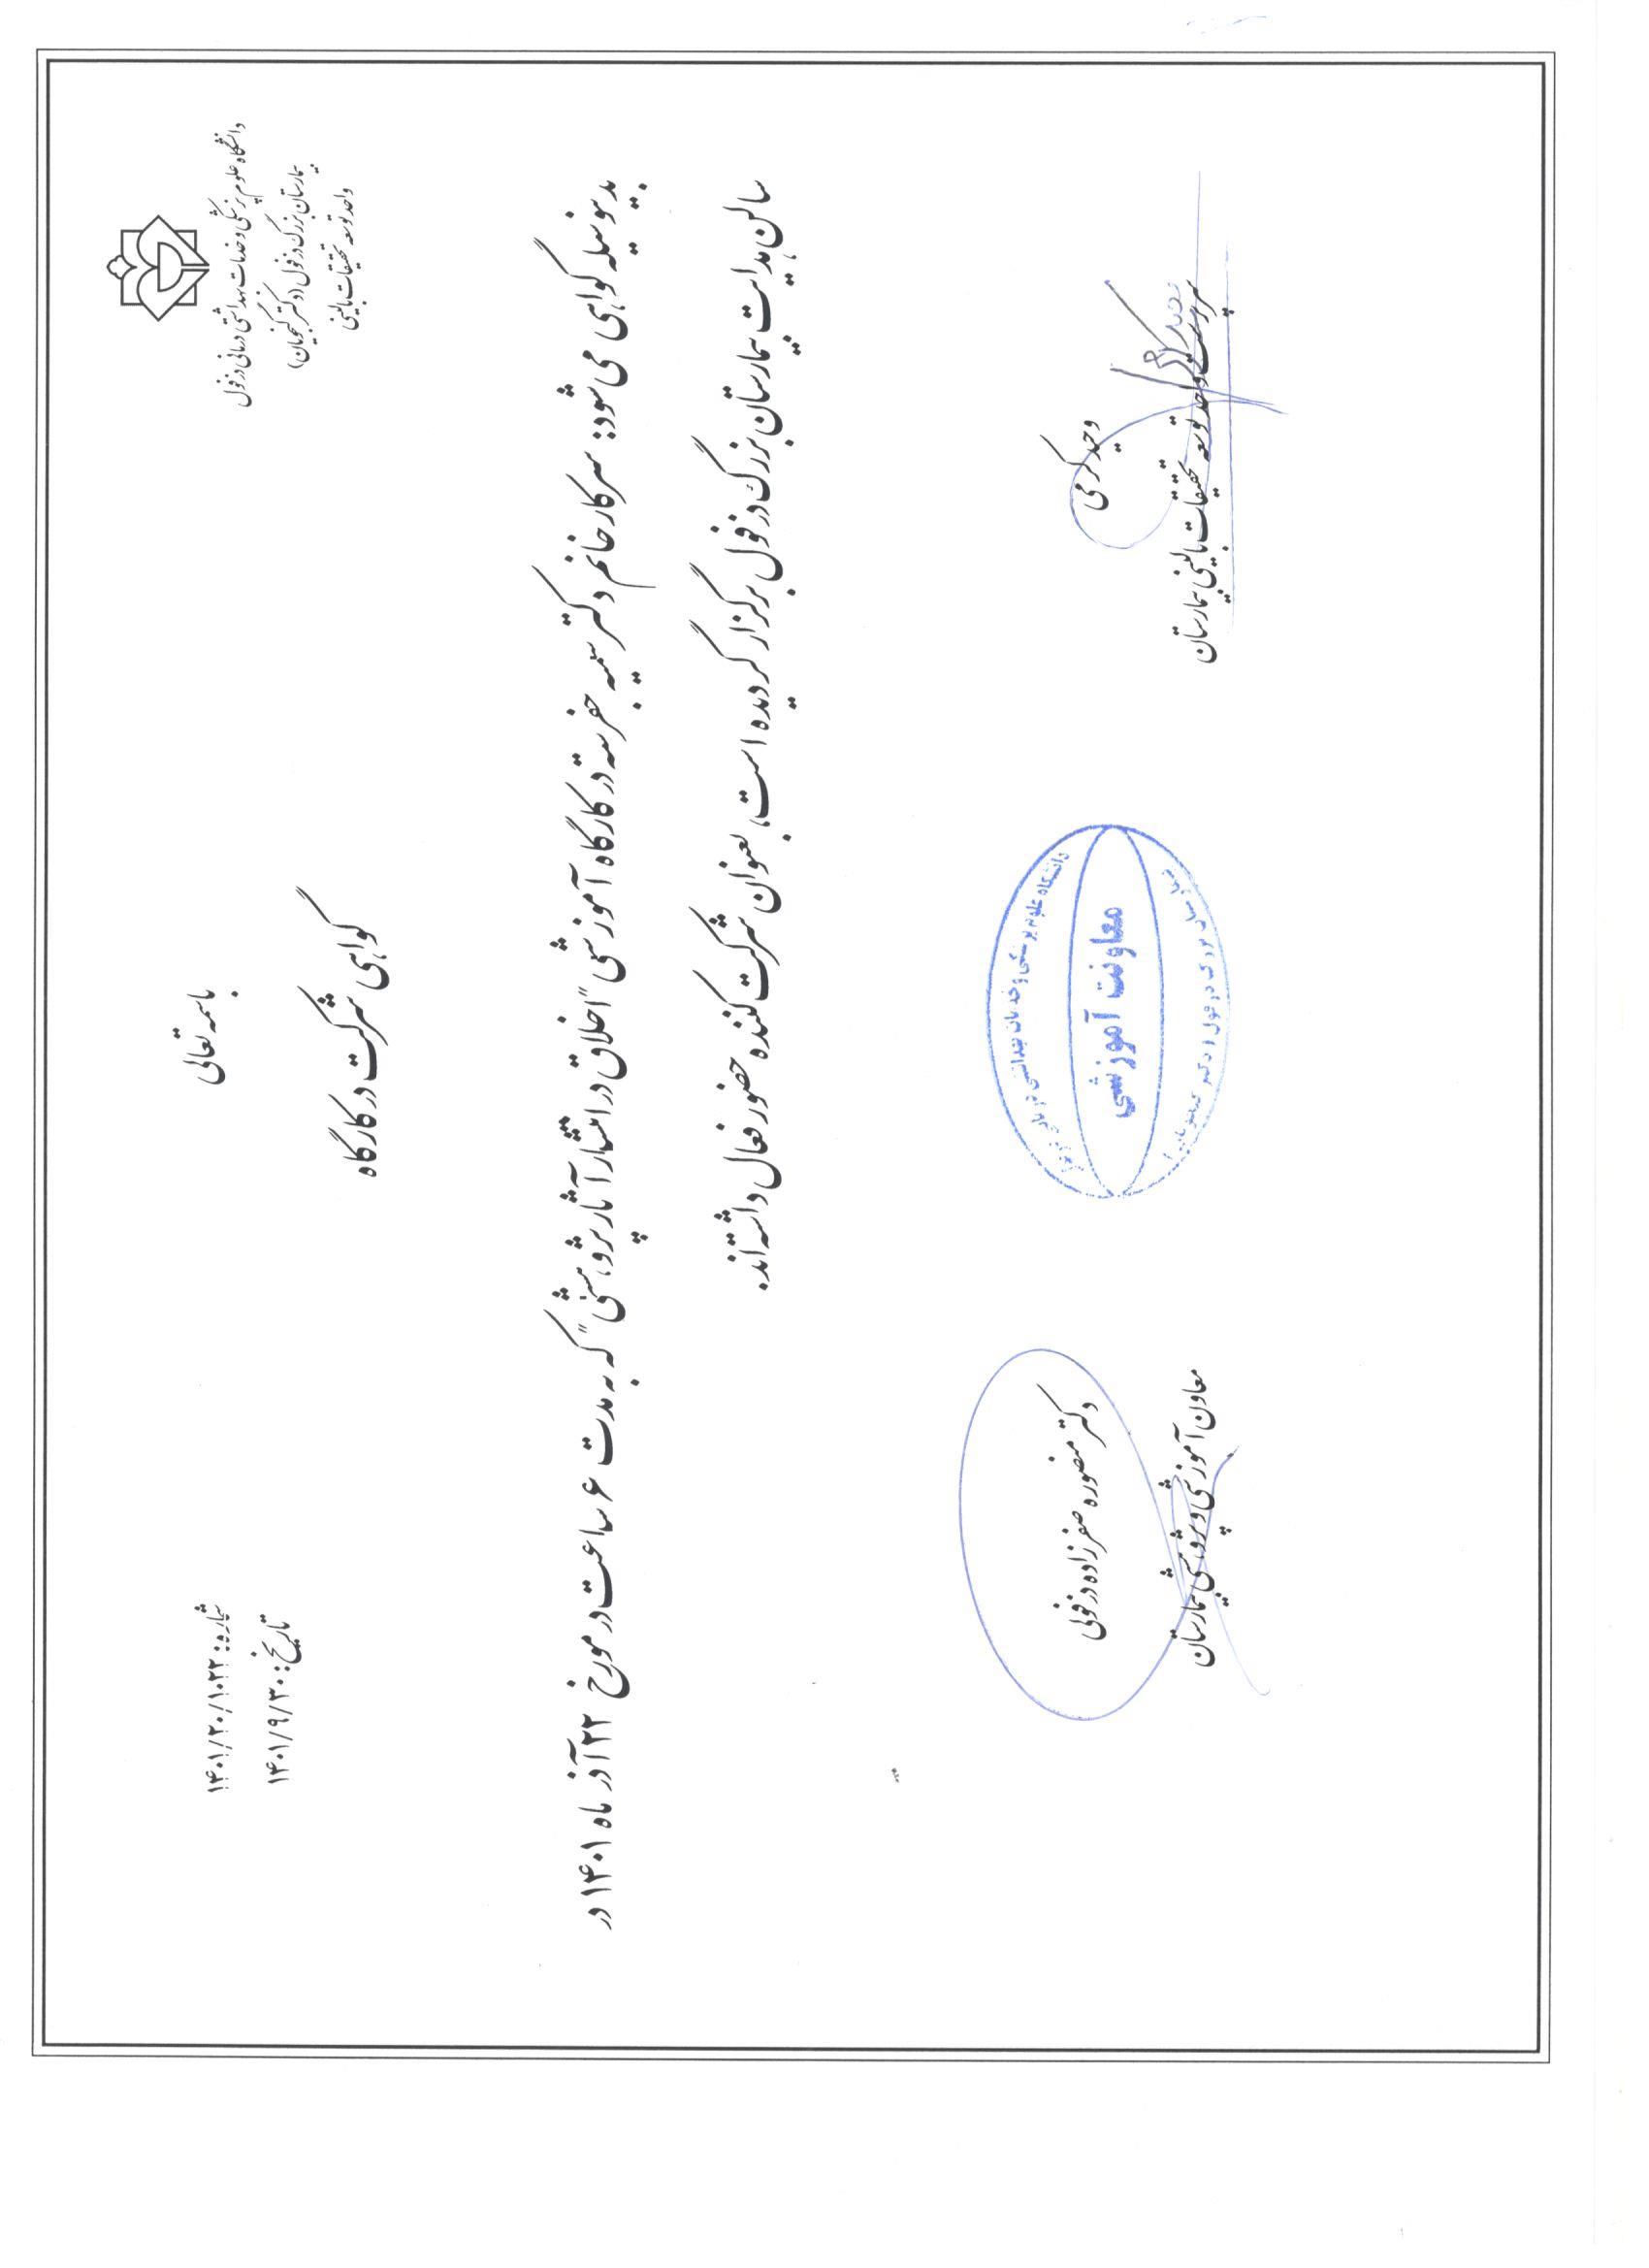 باسمه تعالی
دانشگاه علوم پزشکی و خدمات بهداشتی درمانی دزفول
بیمارستان بزرگ دزفول (دکتر گنجویان)
واحد توسعه تحقیقات بالینی
شماره: ۱۴۰۱/۲۰/۱۰۲۲
تاریخ: ۱۴۰۱/۹/۳۰
گواهی شرکت در کارگاه
بدینوسیله گواهی می شود: سرکار خانم دکتر در کارگاه آموزشی "اخلاق در انتشار آثار پژوهشی" که به مدت ۶ ساعت در مورخ ۲۲ آذر ماه ۱۴۰۱ در
سالن هدایت بیمارستان بزرگ دزفول برگزار گردیده است، بعنوان شرکت کننده حضور فعال داشته اند.
وحید کرمی
سرپرست واحد توسعه تحقیقات بالینی بیمارستان
دانشگاه علوم پزشکی و خدمات بهداشتی درمانی دزفول
معاونت آموزشی
دکتر منصوره صفرزاده دزفولی
معاون آموزشی و پژوهشی بیمارستان